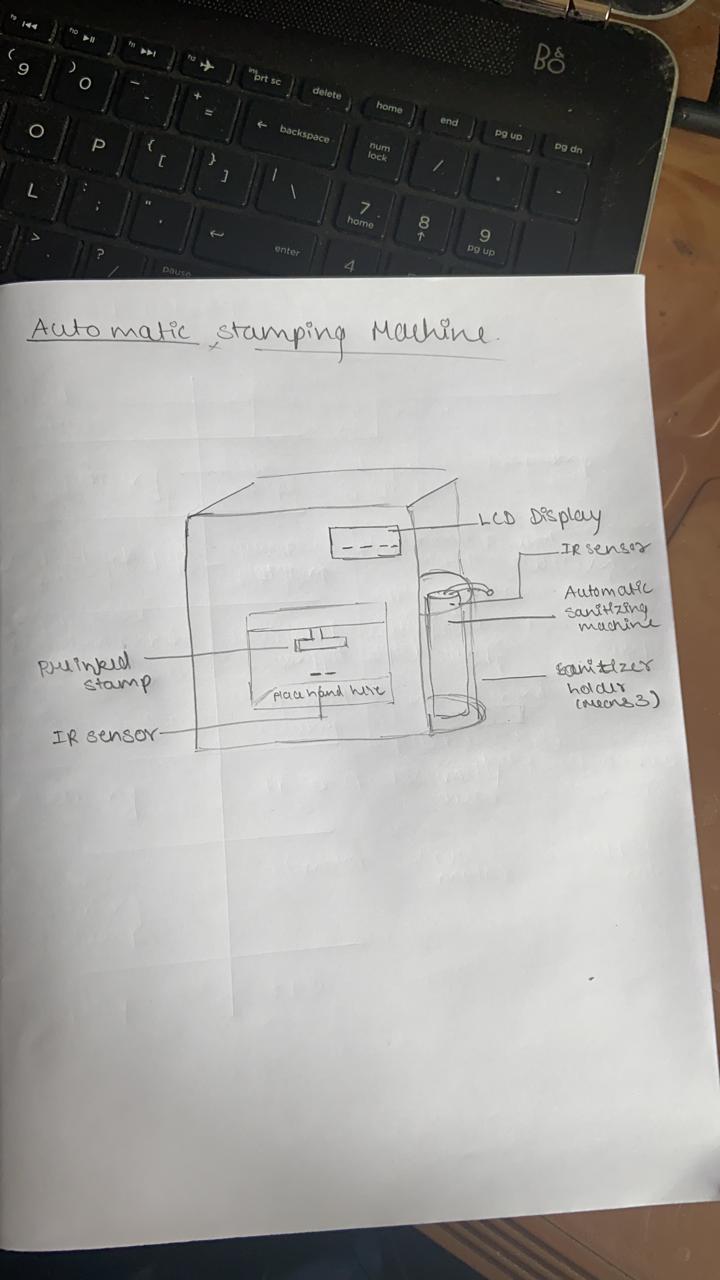 f9 f10 f11 f12 ins prt sc delete home end pg up pg dn
B&O
( 9 ) 0 _ - + = ← backspace num lock / * -
O P { [ } ] | \ 7 home 8 ↑ 9 pg up
L : ; " ' ↵ enter 4
> . ? / pause
Automatic stamping Machine.
LCD Display
IR sensor
Automatic
sanitizing
machine
Preinked
stamp
sanitizer
holder
Place hand here
IR sensor